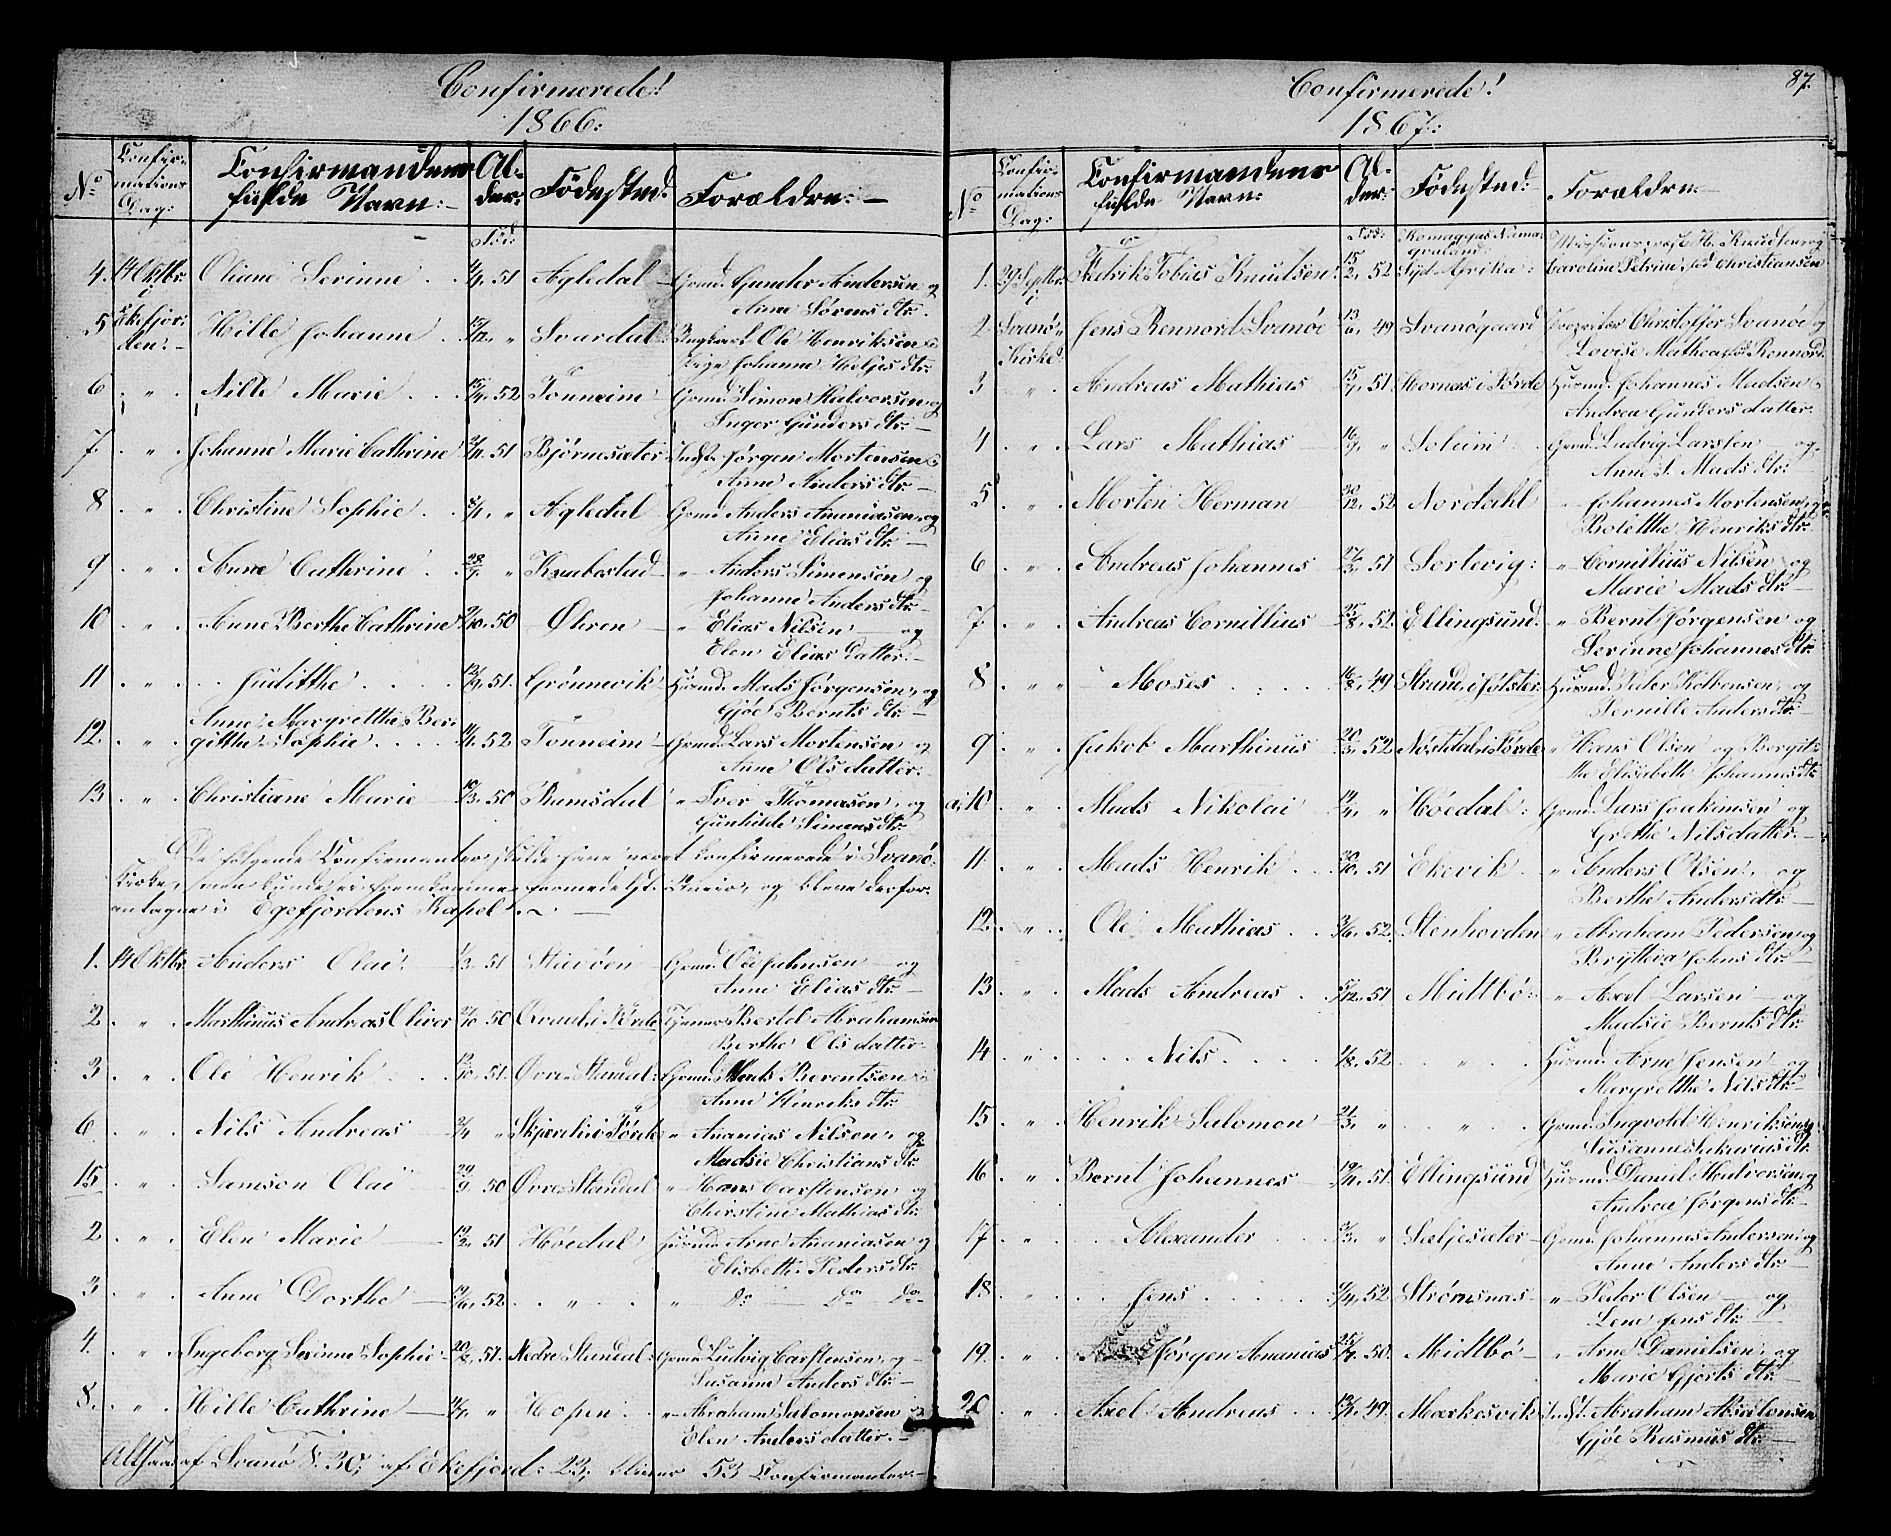 Confirmerede!
1866:
No
Confir-
mations
Dag:
Confirmandens
fulde Navn:
Al-
der:
Fødested:
Forældre:
Fød:
4. 14 Oktbr. Oliane Serinne 51 Agledal Grmd. Gunder Andersen og
i
Anne Sørens dtr.
5 Ekefjor-
den: Hille Johanne " Svardal Ole Henriksen
Pige Johanne Heljes dtr.
6 " Nille Marie 52 Tonneim Grmd. Simon Halvorsen og
Inger Gunders dtr.
7 " Johanne Marie Cathrine 51 Bjørnesæter Indst. Jørgen Mortensen
Anne Anders dtr.
8 " Christine Sophie " Agledal Grmd. Anders Ananiasen og
Anne Elias dtr.
9 " Anne Cathrine 28/9 " Knabestad " Anders Simensen og
Johanne Anders dtr.
10 " Anne Berthe Cathrine 50 Øhren " Elias Nilsen og
Elen Elias datter.
11 " Juditthe 12/9 51. Grønnevik Huusmd. Mads Jørgensen og
Gjøe Bernts dtr.
Anne Margrethe Ber-
12. " gitthe Sophie 52 Tonneim Grmd. Lars Mortensen og
Anne Ols datter.
13 " Christiane Marie 10/3 50 Ramsdal " Iver Thomasen og
Gunhilde Simens dtr.
De følgende Confirmanter skulde have været konfirmerede i Svanø
Kirke, men kunde ei fremkomme formedelst og bleve derfor
antagne i Egefjordens Kapel.
1. 14 Oktbr. Anders Olai 1/3 51 Grmd. Ole Johnsen og
Anne Elias dtr.
2 " Marthinus Andreas Oliver 50 i Førde Bertel Abrahamsen
Berthe Ols datter
3 " Ole Henrik 12/10 51. Øvre Standal: Grmd. Mads Berentsen
Anne Henriks dtr.
6 " Nils Andreas " i Førde " Ananias Nilsen og
Madsie Christians dtr.
15 " Samson Olai 29/9 50 Øvre Standal " Hans Carstensen og
Christine Mathias dtr.
2 " Elen Marie 12/2 51 Høedal Huusmd. Arne Ananiasen og
Elisbeth Peders dtr.
3 " Anne Dorthe 52 " " Do Do Do
4. " Ingeborg Serinne Sophie 51. Nedre Standal: Grmd. Ludvig Carstensen og
Susanne Anders dtr.
8. " Hille Cathrine " Hopen " Abraham Salomonsen
Elen Anders datter.
Altsaa af Svanø S. 30, af Ekefjord: 23, bliver 53 Confirmanter.
Confirmerede!
87.
1867:
No
Confir-
mations
Dag:
Confirmandens
fulde Navn:
Al-
der:
Fødested:
Forældre:
Fød: Komaggas Nama-
qualand Missionspræst H. Knudsen og
1. 29 Septbr. Fredrik Tobias Knudsen 15/2 52 Syd Afrika: Caroline Petrine fød Christiansen
i
2 Svanø
Kirke Jens Rennord Svanøe 49 Svanøgaard Proprietær Christoffer Svanøe og
Lovise Mathea fød Rennord.
3 " Andreas Mathias 51. Hornæs i Førde Huusmd. Johannes Madsen
Andrea Gunders datter.
4 " Lars Mathias " Soleim Grmd. Ludvig Larssen og
Anne S. Mads dtr.
5 " Morten Herman 20/12 52 Nordahl " Johannes Mortensen og
Bolethe Henriks dtr.
6 " Andreas Johannes 51 Sørlevig: " Cornillius Nilsen og
Marie Mads dtr.
7 " Andreas Cornillius 52. Ellingsund. " Bernt Jørgensen og
Serinne Johannes dtr.
8 " Moses 49 Strand i Jølster: Huusmd. Peder Kolbensen og
Pernille Anders dtr.
9 " Jakob Marthinus 52 Nøstdal i Førde " Hans Olsen og Bergit-
the Elisabeth Johannes dtr.
10 " Mads Nikolai " Høedal: Grmd. Lars Joakimsen og
Grethe Nilsdatter.
11 " Mads Henrik 51 Ekevik " Anders Olsen og
Berthe Anders dtr.
12. " Ole Mathias 52. Stenhovden " Abraham Pedersen og
Johns dtr.
13 " Mads Andreas 51 Midtbø: " Axel Larsen og
Madsie Bernts dtr.
14 " Nils 52 " Huusmd. Arne Jensen og
Margretthe Nils dtr.
15 " Henrik Salomon " " Grmd. Ingvold Henriksen og
Susanne Sakarias dtr.
16 " Bernt Johannes 51 Ellingsund Huusmd. Daniel Halvorsen og
Andrea Jørgens dtr.
17 " Alexander " Sæljesæter Grmd. Johannes Andersen og
Anne Anders dtr.
18 " Jens 52 Strømsnæs " Peder Olsen og
Lene Jens dtr.
19. " Jørgen Ananias 50. Midtbø " Arne Danielsen og
Marie Gjerts dtr.
20 " Axel Andreas 49. Mærkesvik Indst. Abraham Absalonsen
Gjøe Rasmus dtr.